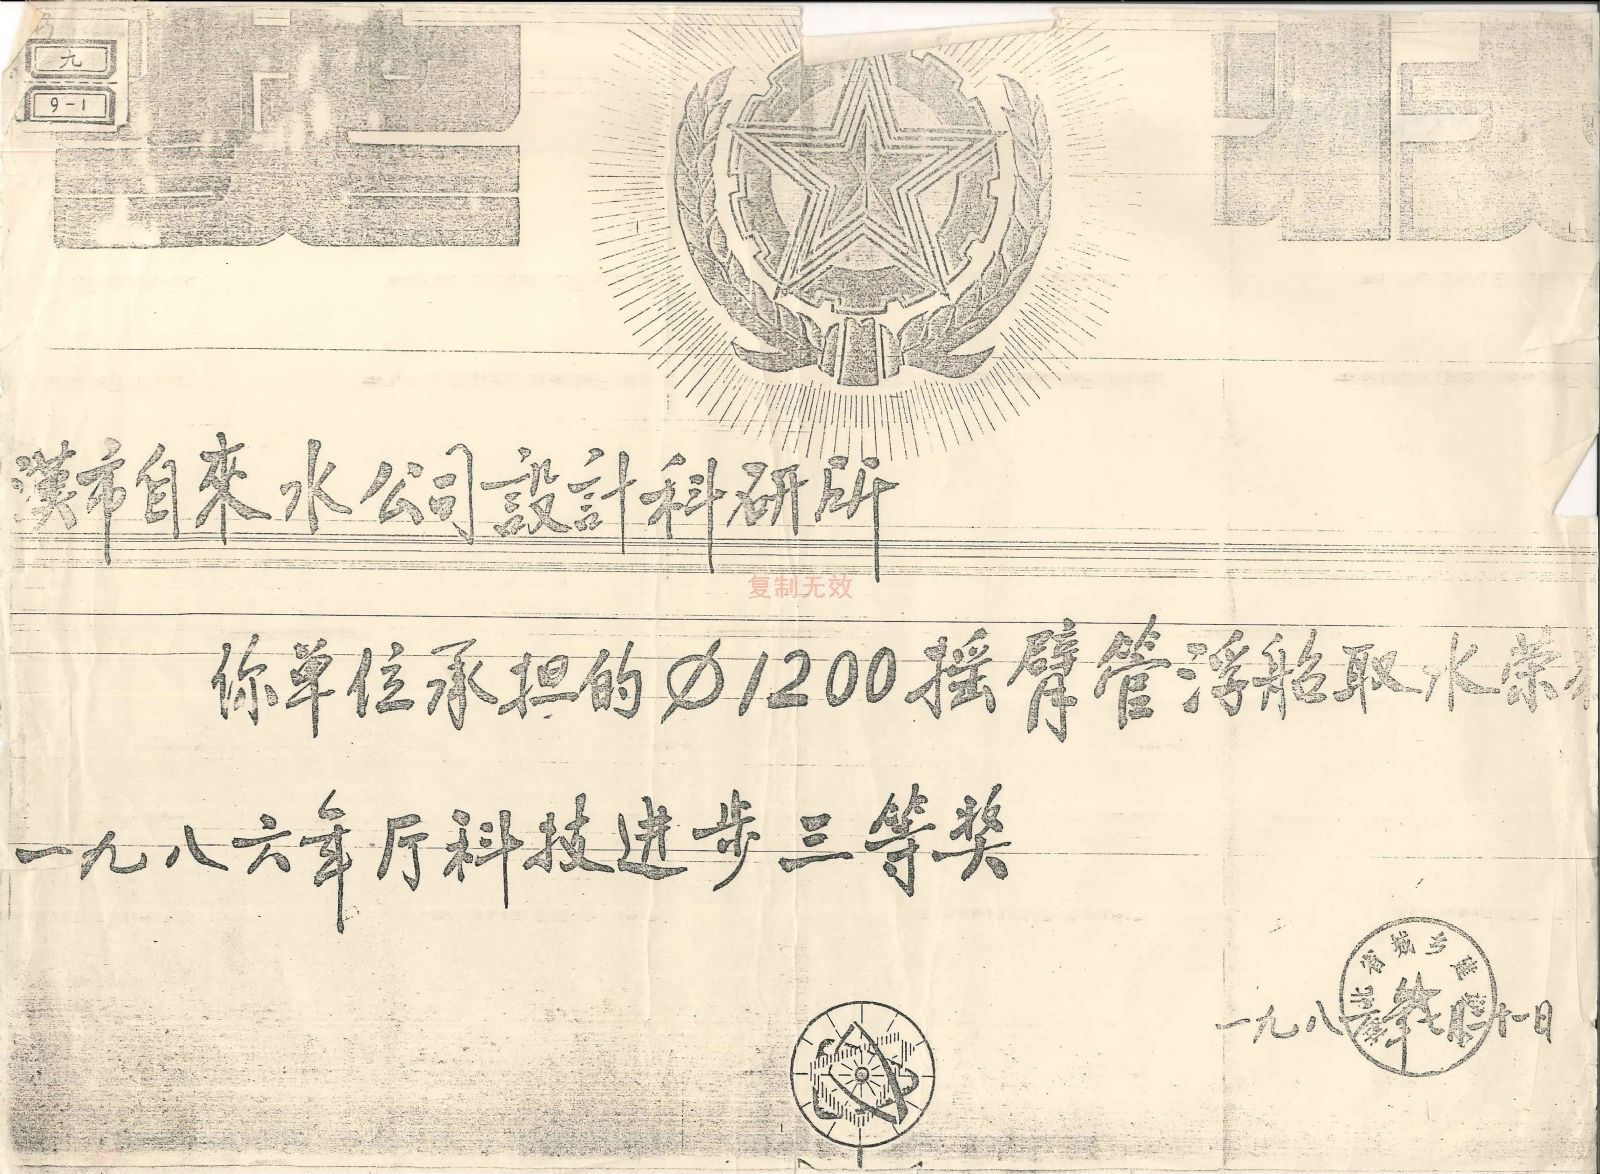 九
9-1
漢市自來水公司設計科研所
复制无效
你单位承担的Ø1200摇臂管浮船取水荣
一九八六年厅科技进步三等奖
省城乡建
一九八六年七月二十一日